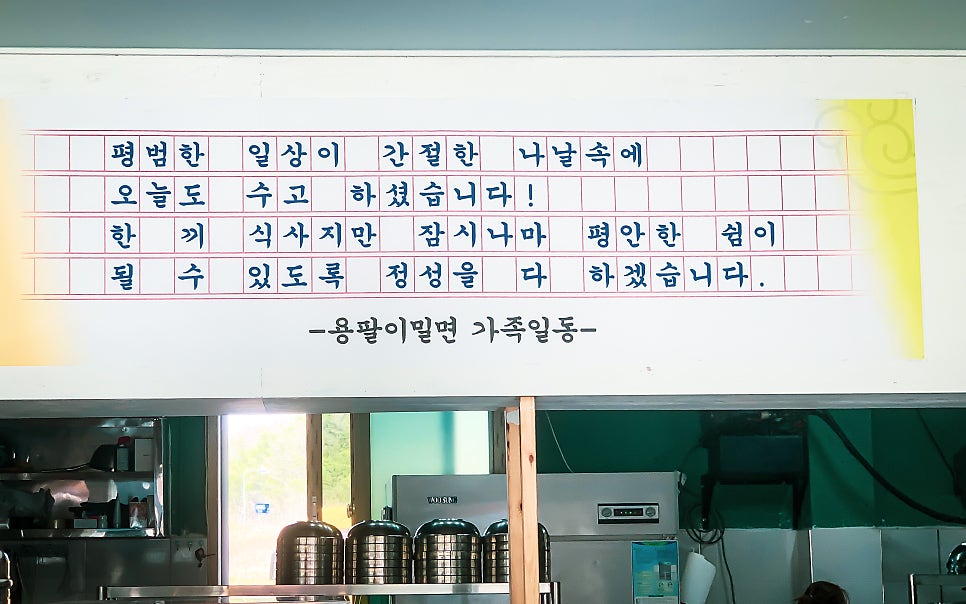 평범한 일상이 간절한 나날속에
오늘도 수고 하셨습니다!
한 끼 식사지만 잠시나마 평안한 쉼이
될 수 있도록 정성을 다 하겠습니다.
-용팔이밀면 가족일동-